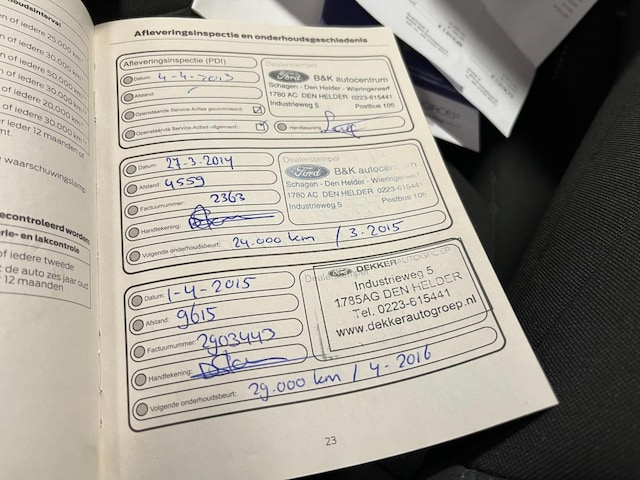 n of iedere 25.000 km
n of iedere 30.000 km
n of iedere 30.000 km
12 maanden
waarschuwingslamp
econtroleerd worden:
rie- en lakcontrole
of iedere tweede
de auto zes jaar oud
12 maanden
Afleveringsinspectie en onderhoudsgeschiedenis
Afleveringsinspectie (PDI)
Datum: 4-4-2013
Afstand:
Openstaande Service-Acties gecontroleerd:
Openstaande Service-Acties uitgevoerd:
Dealerstempel
Ford B&K autocentrum
Schagen - Den Helder - Wieringerwerf
1780 AC DEN HELDER 0223-615441
Industrieweg 5 Postbus 106
Handtekening:
Datum: 27-3-2014
Afstand: 4559
Factuurnummer: 2363
Handtekening:
Volgende onderhoudsbeurt: 24.000 km / 3-2015
Dealerstempel
Ford B&K autocentrum
Schagen - Den Helder - Wieringerwerf
1780 AC DEN HELDER 0223-615441
Industrieweg 5 Postbus 106
Datum: 1-4-2015
Afstand: 9615
Factuurnummer: 2903443
Handtekening:
Volgende onderhoudsbeurt: 29.000 km / 4-2016
DEKKERAUTOGROEP
Industrieweg 5
1785AG DEN HELDER
Tel. 0223-615441
www.dekkerautogroep.nl
23